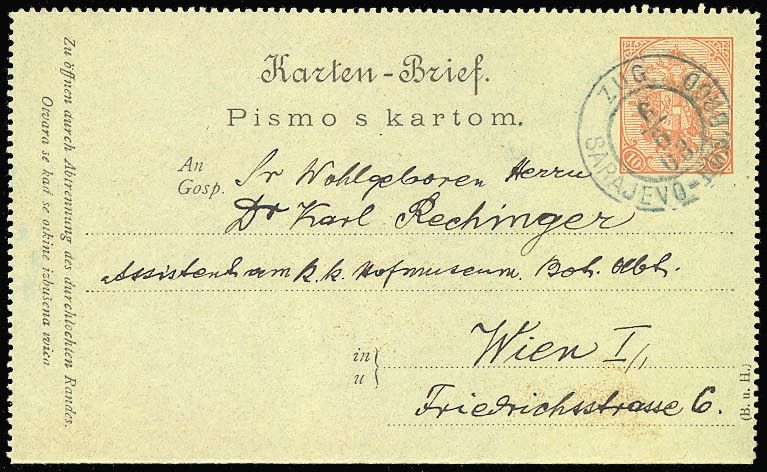 Karten-Brief.
Pismo s kartom.
An
Gosp.
Sr Wohlgeboren Herrn
Dr Karl Rechinger
Assistent am k. k. Hofmuseum. Bot. Abt.
in
u
Wien I/,
Friedrichsstrasse 6.
Zu öffnen durch Abtrennung des durchlochten Randes.
Otvara se kad se otkine izbušena ivica
(B. u. H.)
ZUG
SARAJEVO-
10